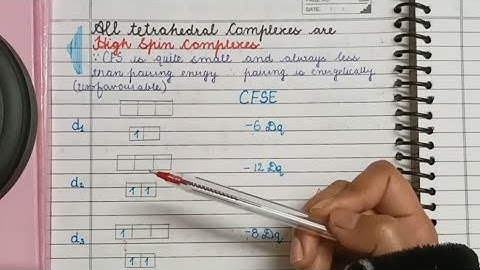 All tetrahedral Complexes are
High Spin Complexes.
∵ CFS is quite small and always less
than pairing enrgy ∴ pairing is energetically
(unfavourable)
CFSE
d1 1 -6 Dq
d2 1 1 -12 Dq
1
d3 -8 Dq
1 1